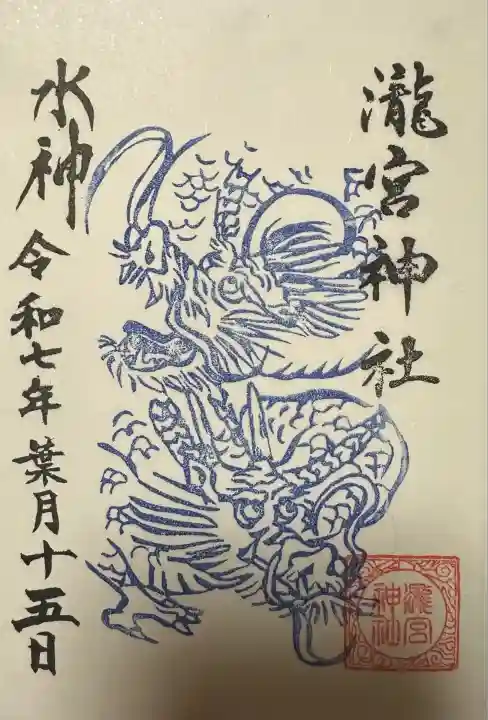 瀧宮神社
水神
令和七年葉月十五日
瀧宮
神社